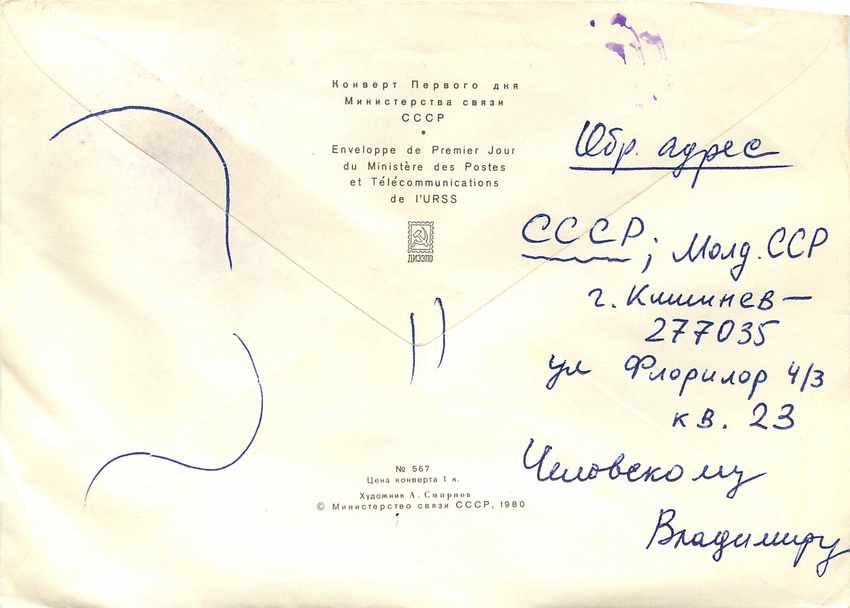 Конверт Первого дня
Министерства связи
СССР
•
Enveloppe de Premier Jour
du Ministère des Postes
et Télécommunications
de l'URSS
ДИЭЗПО
№ 567
Цена конверта 1 к.
Художник А. Смирнов
© Министерство связи СССР, 1980
Обр. адрес
СССР; Молд. ССР
г. Кишинев —
277035
ул Флорилор 4/3
кв. 23
Человскому
Владимиру